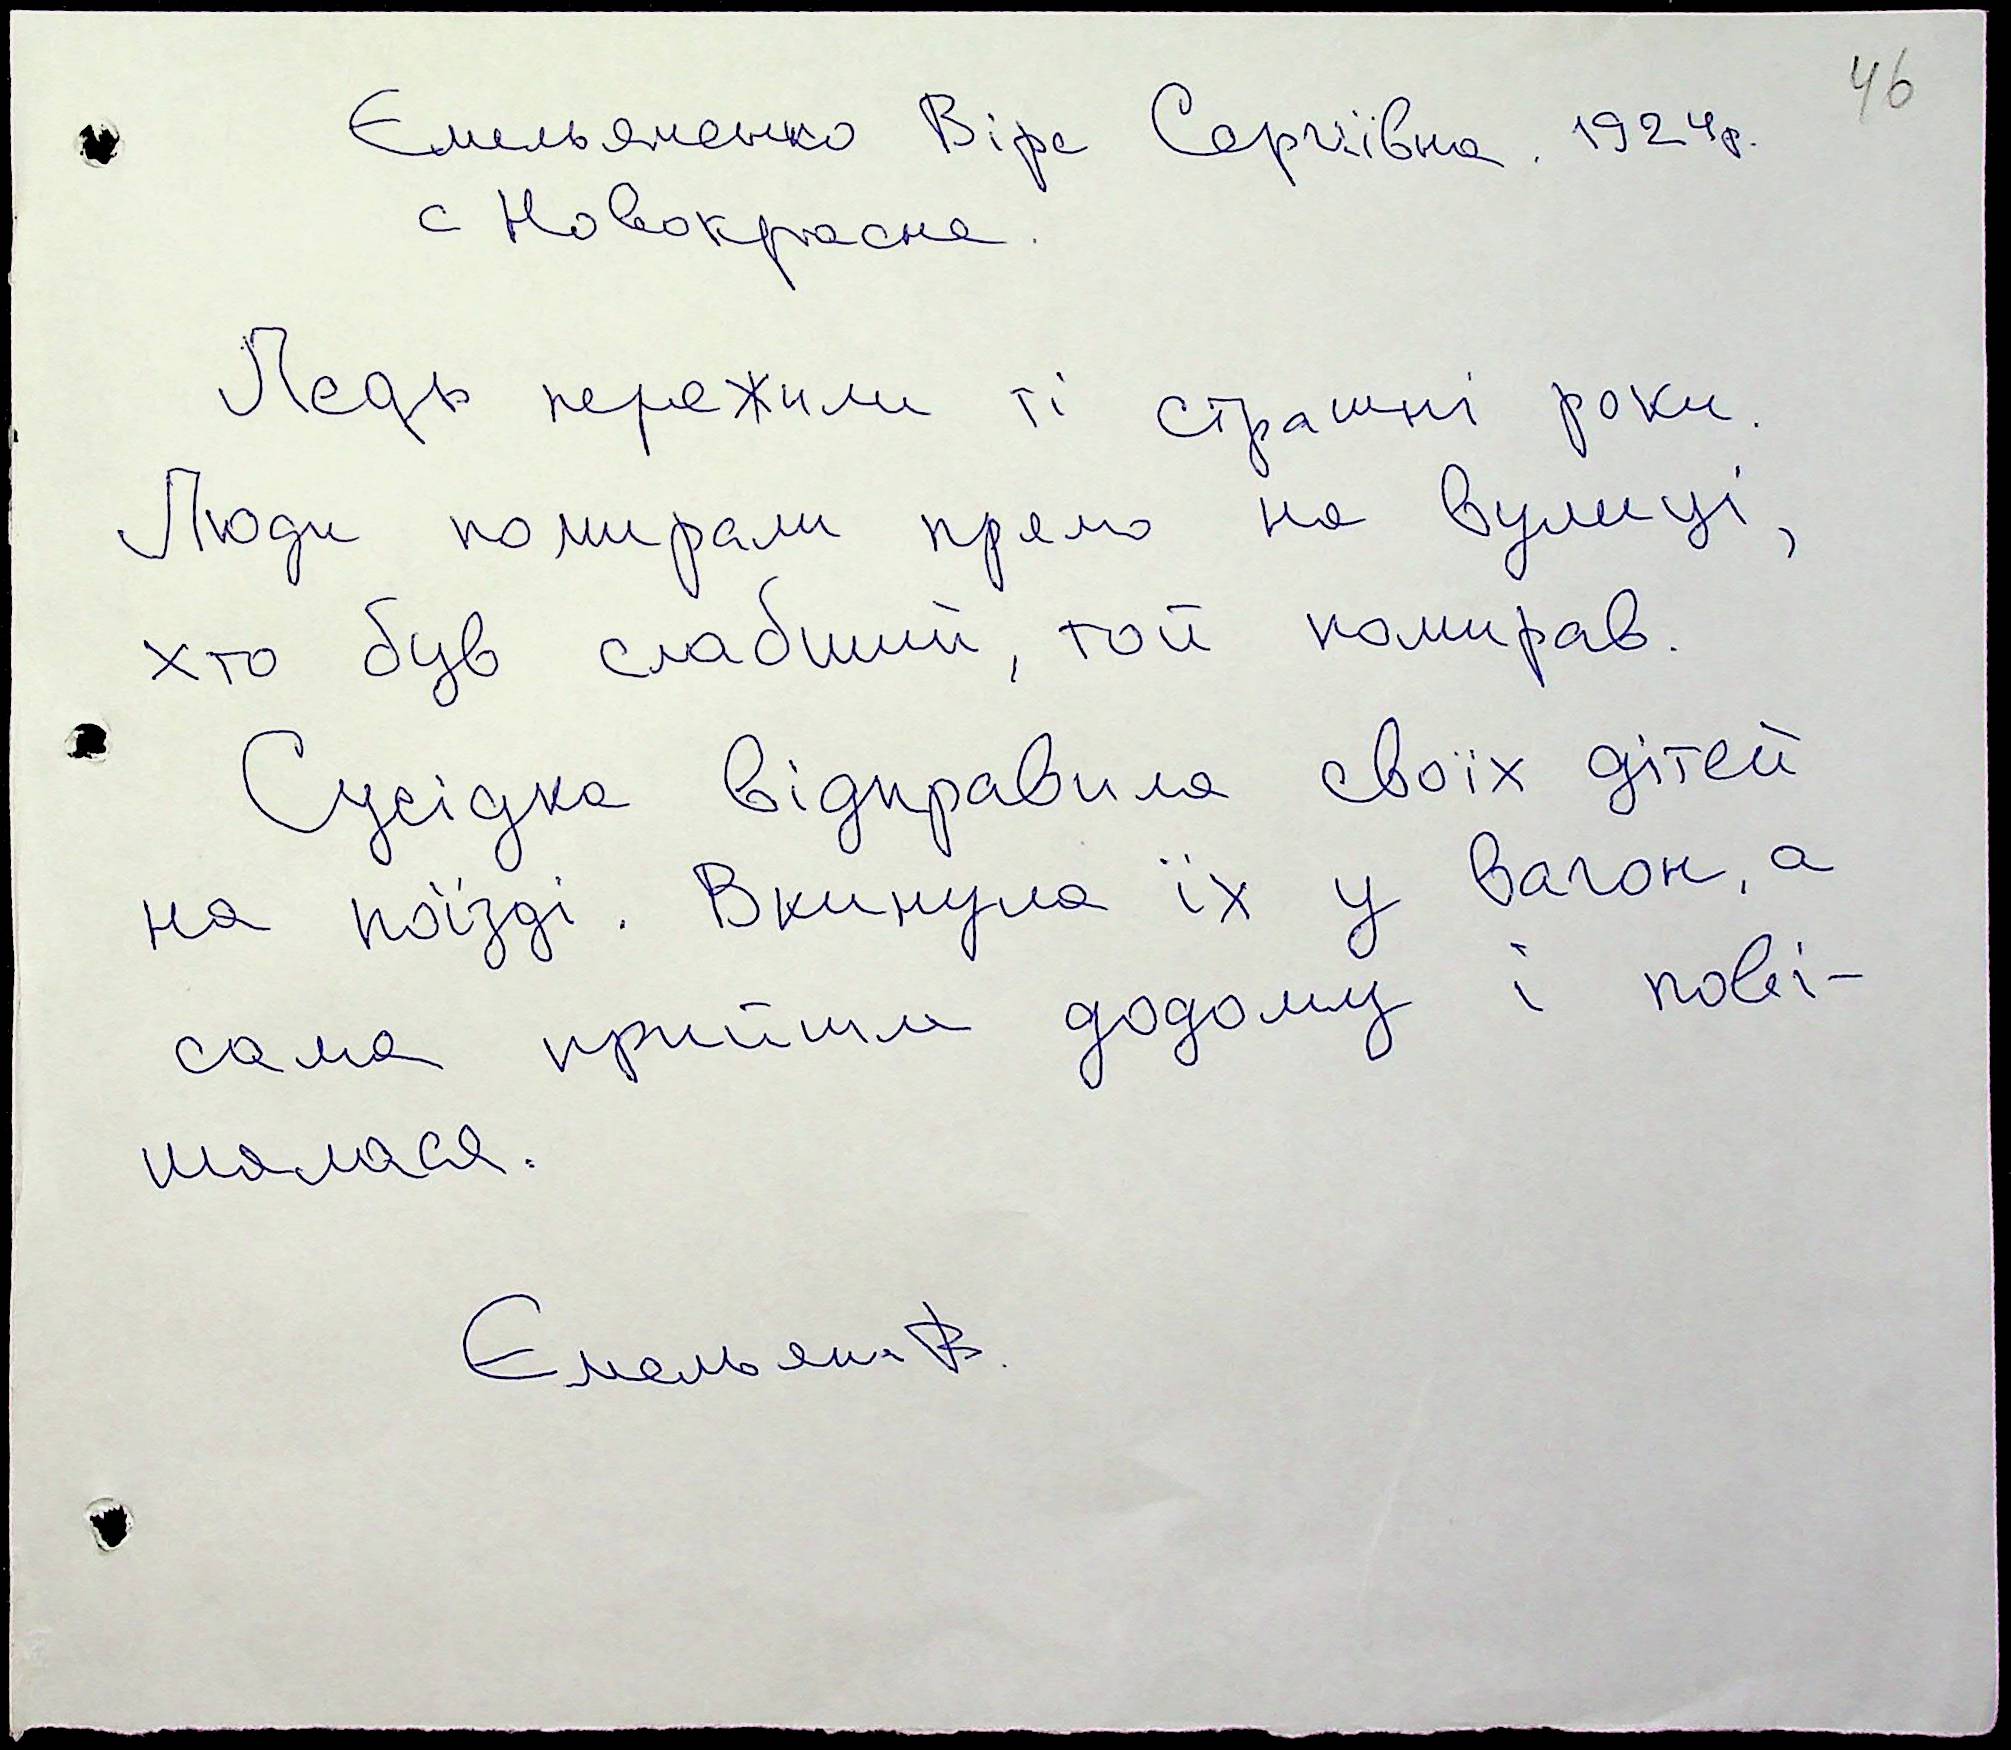 46
Ємельяненко Віра Сергіївна. 1924р.
с Новокрасне.
Лєдь пережили ті страшні роки.
Люди помирали прямо на вулиці,
хто був слабший, той помирав.
Сусідка відправила своїх дітей
на поїзді. Вкинула їх у вагон, а
сама прийшла додому і пові-
шалася.
Ємельян В.